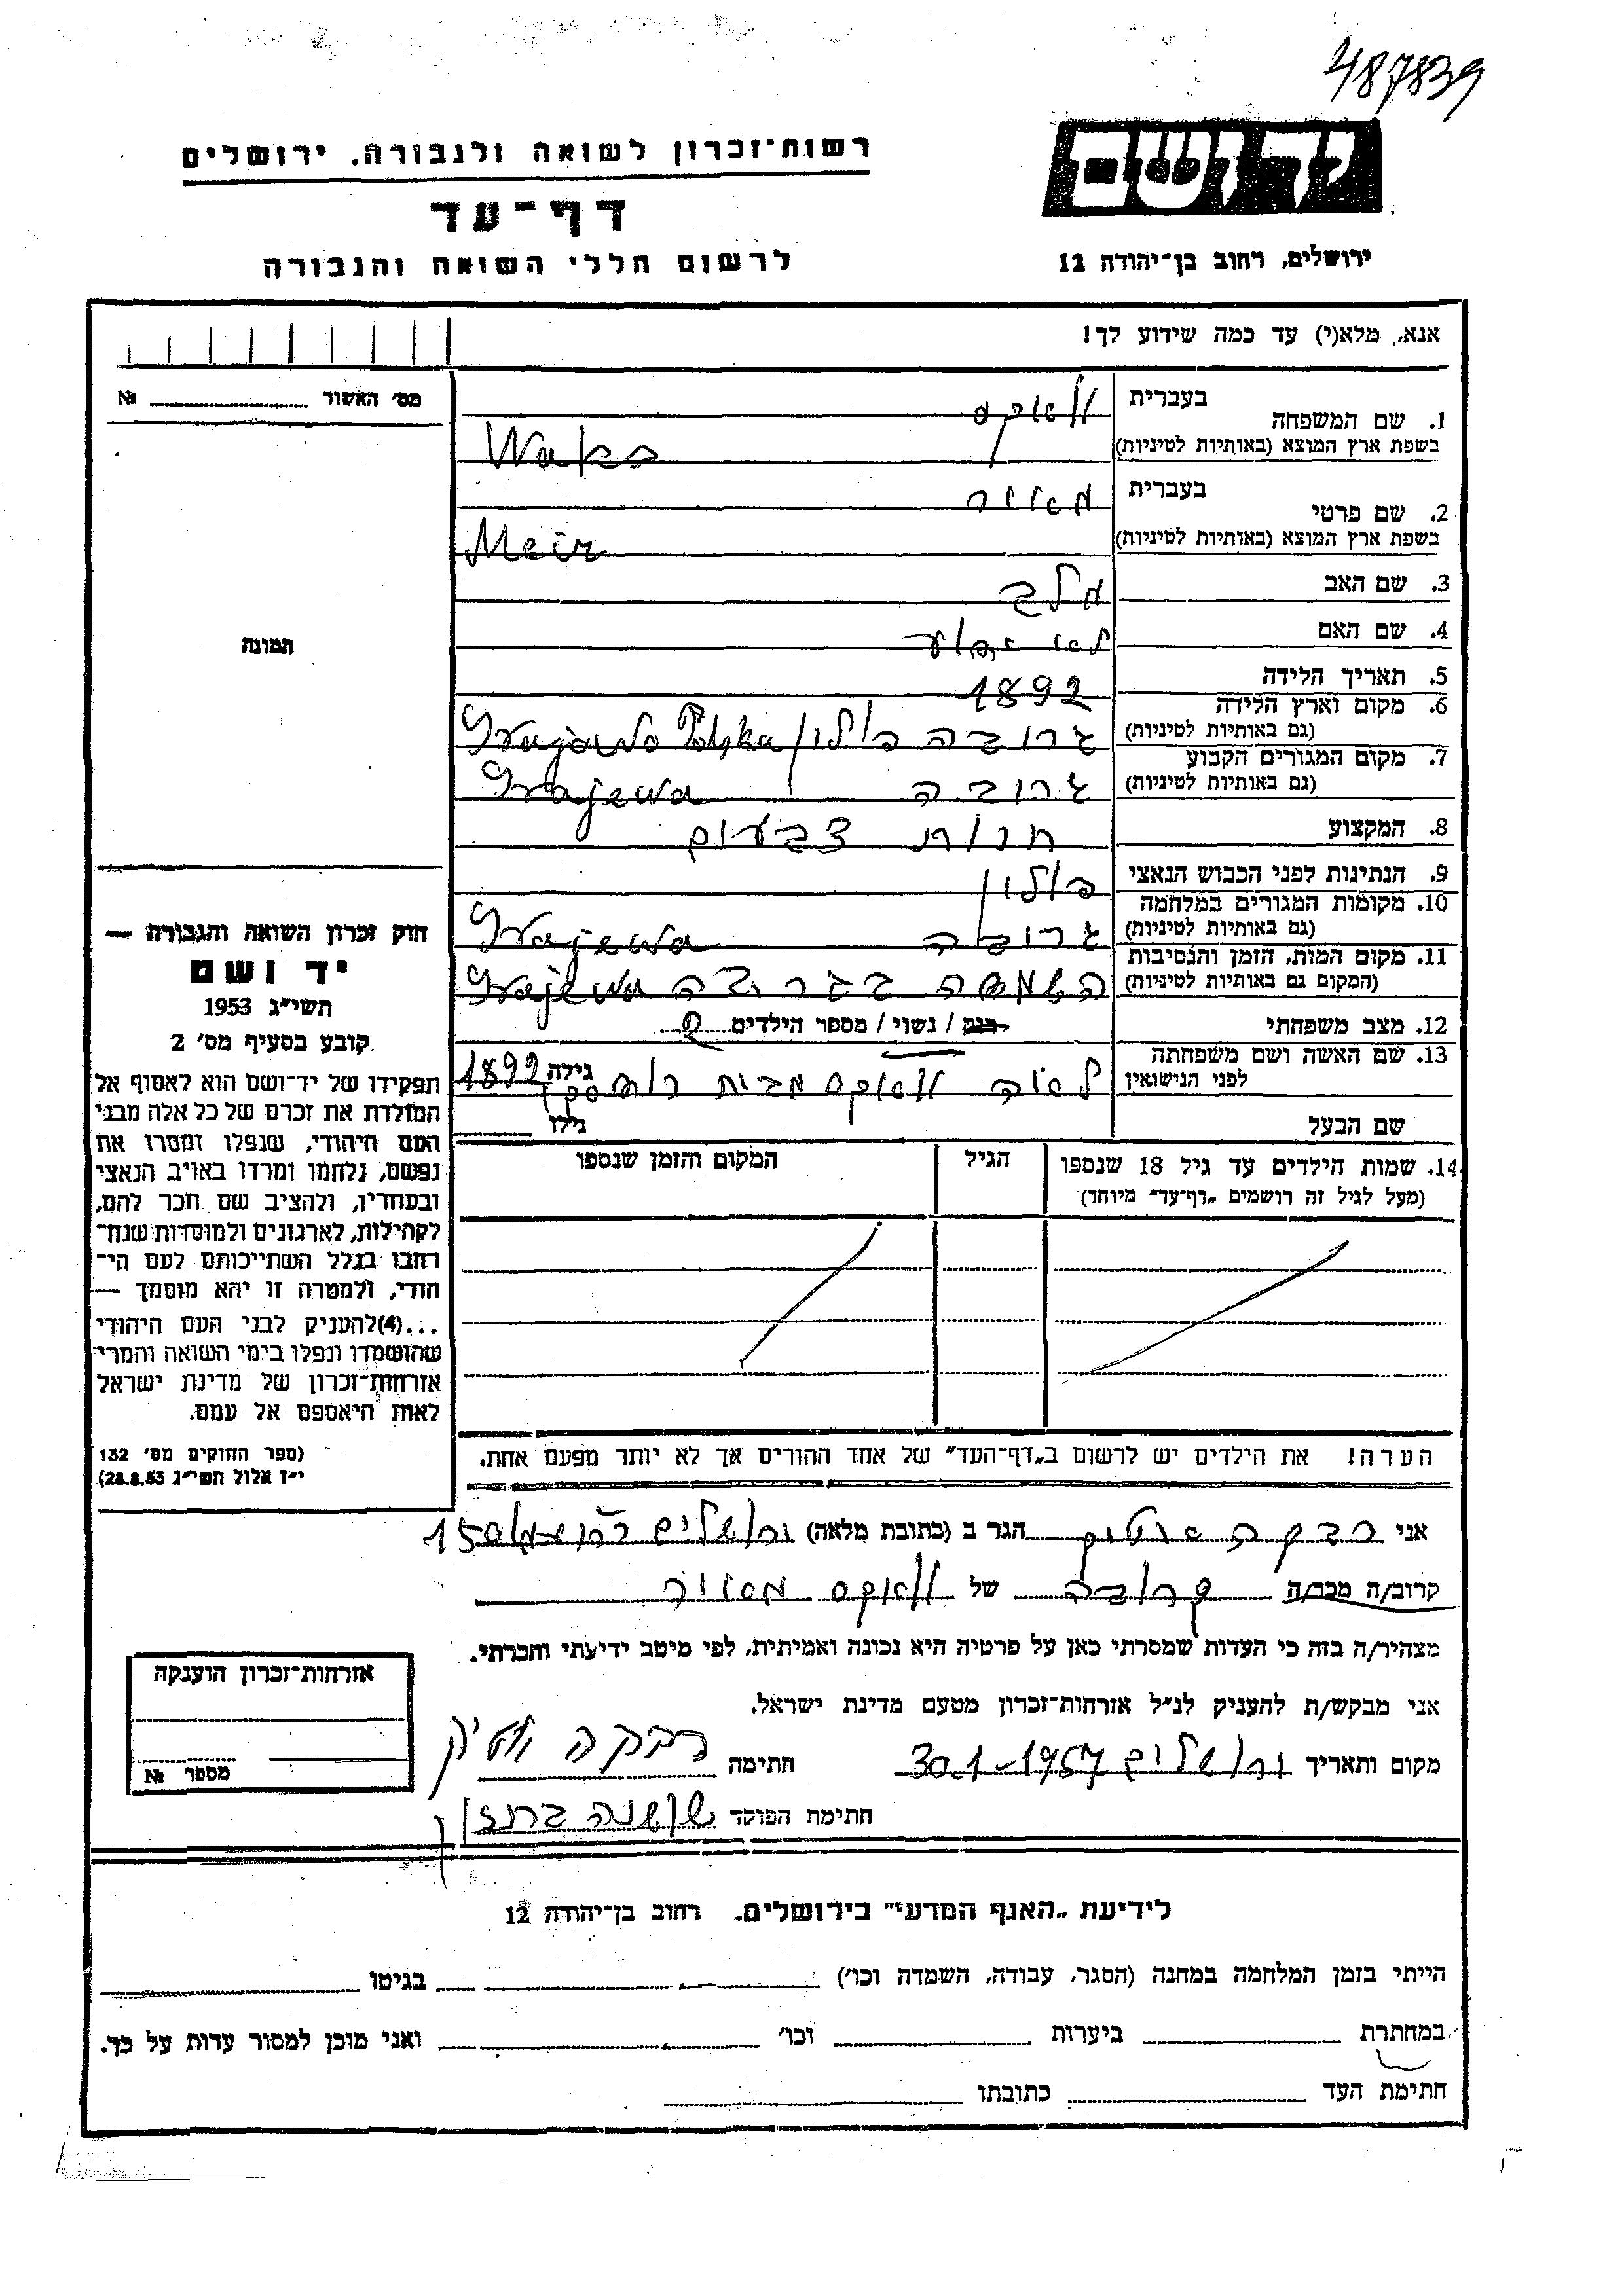 487839
יד ושם
ירושלים, רחוב בן־יהודה 12
רשות־זכרון לשואה ולגבורה, ירושלים
דף־עד
לרשום חללי השואה והגבורה
אנא, מלא(י) עד כמה שידוע לך!
מס׳ האשור № 
1. שם המשפחה בעברית וואקס
בשפת ארץ המוצא (באותיות לטיניות) Waks
2. שם פרטי בעברית מאיר
בשפת ארץ המוצא (באותיות לטיניות) Meir
3. שם האב
4. שם האם
5. תאריך הלידה 1892
6. מקום וארץ הלידה
(גם באותיות לטיניות) פולין Grajewo Polska
7. מקום המגורים הקבוע
(גם באותיות לטיניות) Grajewa
8. המקצוע חנות צבעים
9. הנתינות לפני הכבוש הנאצי פולין
10. מקומות המגורים במלחמה
(גם באותיות לטיניות) Grajewa
11. מקום המות, הזמן והנסיבות
(המקום גם באותיות לטיניות) Grajewa
12. מצב משפחתי רווק / נשוי / מספר הילדים 2
13. שם האשה ושם משפחתה
לפני הנישואין וואקס מבית גילה 1892
שם הבעל גילו
14. שמות הילדים עד גיל 18 שנספו הגיל המקום והזמן שנספו
(מעל לגיל זה רושמים „דף־עד״ מיוחד)
הערה! את הילדים יש לרשום ב„דף־העד״ של אחד ההורים אך לא יותר מפעם אחת.
תמונה
חוק זכרון השואה והגבורה —
יד ושם
תשי״ג 1953
קובע בסעיף מס׳ 2
תפקידו של יד־ושם הוא לאסוף אל
המולדת את זכרם של כל אלה מבני
העם היהודי, שנפלו ומסרו את
נפשם, נלחמו ומרדו באויב הנאצי
ובעוזריו, ולהציב שם וזכר להם,
לקהילות, לארגונים ולמוסדות שנח־
רבו בגלל השתייכותם לעם הי־
הודי, ולמטרה זו יהא מוסמך —
...(4)להעניק לבני העם היהודי
שהושמדו ונפלו בימי השואה והמרי
אזרחות־זכרון של מדינת ישראל
לאות היאספם אל עמם.
(ספר החוקים מס׳ 132
י״ז אלול תשי״ג 28.8.53)
אני רבקה הגר ב (כתובת מלאה) ירושלים 150
קרוב/ה מכר/ה קרובה של וואקס מאיר
מצהיר/ה בזה כי העדות שמסרתי כאן על פרטיה היא נכונה ואמיתית, לפי מיטב ידיעתי והכרתי.
אני מבקש/ת להעניק לנ״ל אזרחות־זכרון מטעם מדינת ישראל.
מקום ותאריך ירושלים 30.1-1957 חתימה רבקה
חתימת הפוקד שושנה
אזרחות־זכרון הוענקה
מספר №
לידיעת „האגף המדעי״ בירושלים. רחוב בן־יהודה 12
הייתי בזמן המלחמה במחנה (הסגר, עבודה, השמדה וכו׳) בגיטו
במחתרת ביערות וכו׳ ואני מוכן למסור עדות על כך.
חתימת העד כתובתו